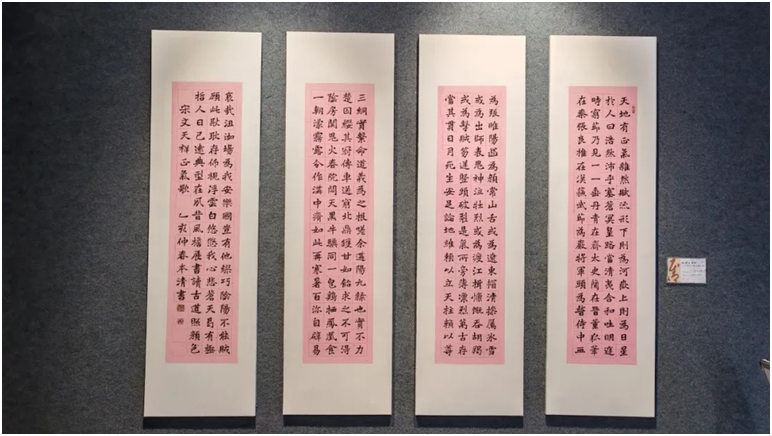 天地有正氣雜然賦流形下則為河嶽上則為日星
於人曰浩然沛乎塞蒼冥皇路當清夷含和吐明庭
時窮節乃見一一垂丹青在齊太史簡在晉董狐筆
在秦張良椎在漢蘇武節為嚴將軍頭為嵇侍中血
為張睢陽齒為顏常山舌或為遼東帽清操厲冰雪
或為出師表鬼神泣壯烈或為渡江楫慷慨吞胡羯
或為擊賊笏逆豎頭破裂是氣所旁薄凜烈萬古存
當其貫日月死生安足論地維賴以立天柱賴以尊
三綱實繫命道義為之根嗟余遘陽九隸也實不力
楚囚纓其冠傳車送窮北鼎鑊甘如飴求之不可得
陰房闃鬼火春院閟天黑牛驥同一皂雞棲鳳凰食
一朝濛霧露分作溝中瘠如此再寒暑百沴自辟易
哀哉沮洳場為我安樂國豈有他繆巧陰陽不能賊
顧此耿耿存仰視浮雲白悠悠我心悲蒼天曷有極
哲人日已遠典型在夙昔風檐展書讀古道照顏色
宋文天祥正氣歌 乙亥仲春本清書